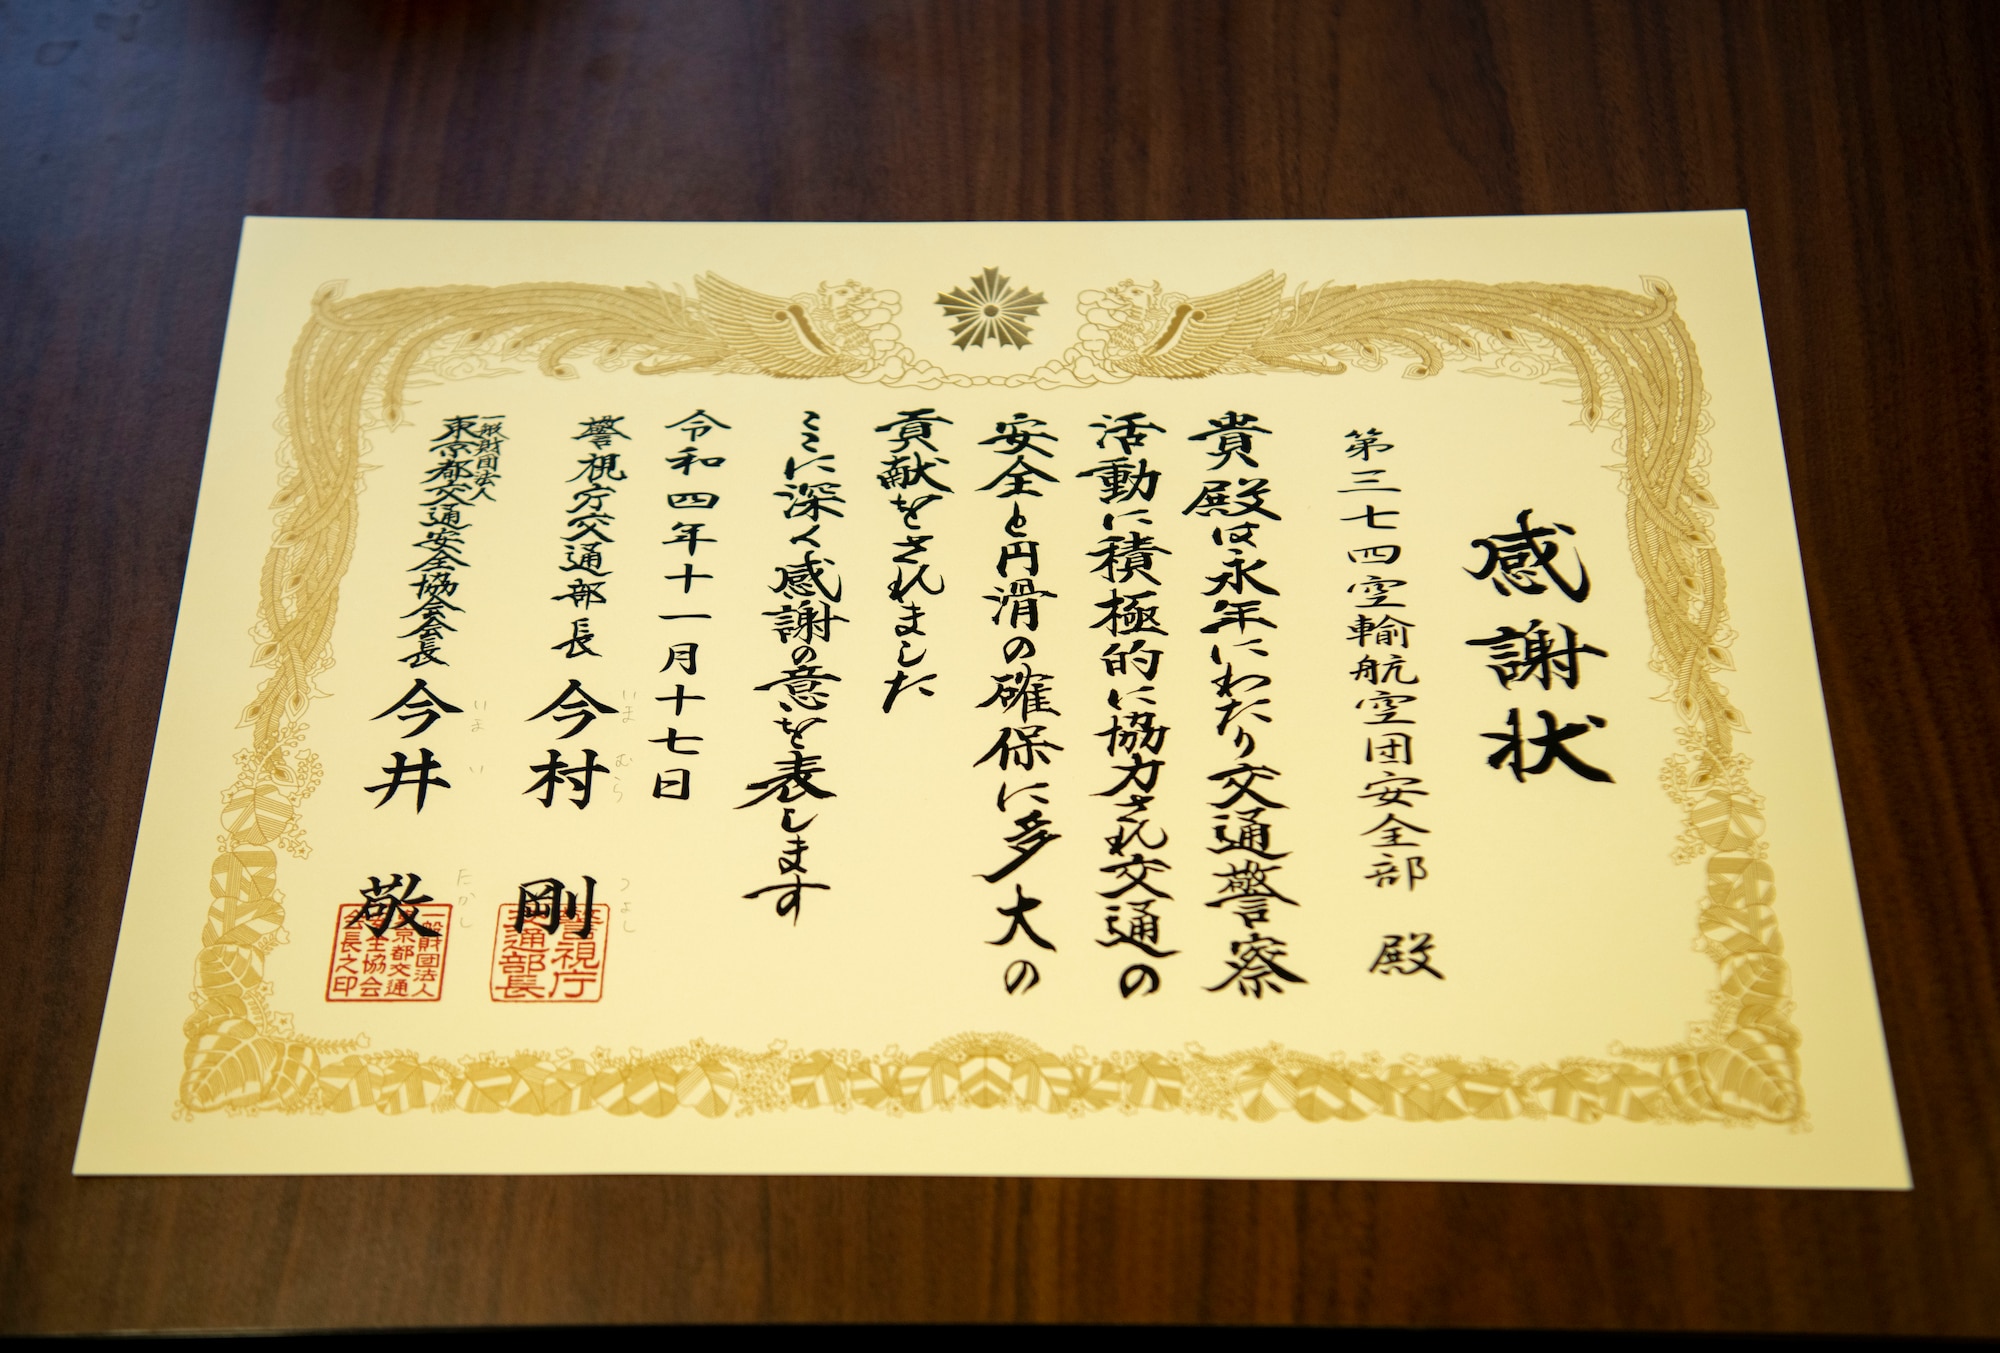 感謝状
第三七四空輸航空団安全部 殿
貴殿は永年にわたり交通警察
活動に積極的に協力され交通の
安全と円滑の確保に多大の
貢献をされました
ここに深く感謝の意を表します
令和四年十一月十七日
警視庁交通部長 今村 剛
いま むら つよし
警視庁
交通部長
一般財団法人
東京都交通安全協会会長 今井 敬
いま い たかし
一般財団法人
東京都交通
安全協会
会長之印